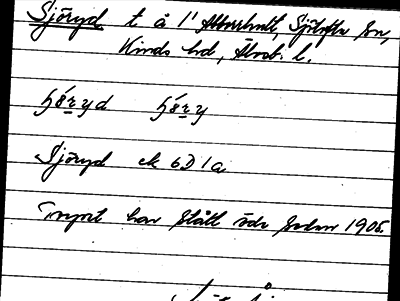 Sjöryd t å 1' Abborrhult, Sjötofta sn,
Kinds hd, Älvsb. l.
Sjöryd ek 6D1a
Torpet har stått öde sedan 1905.